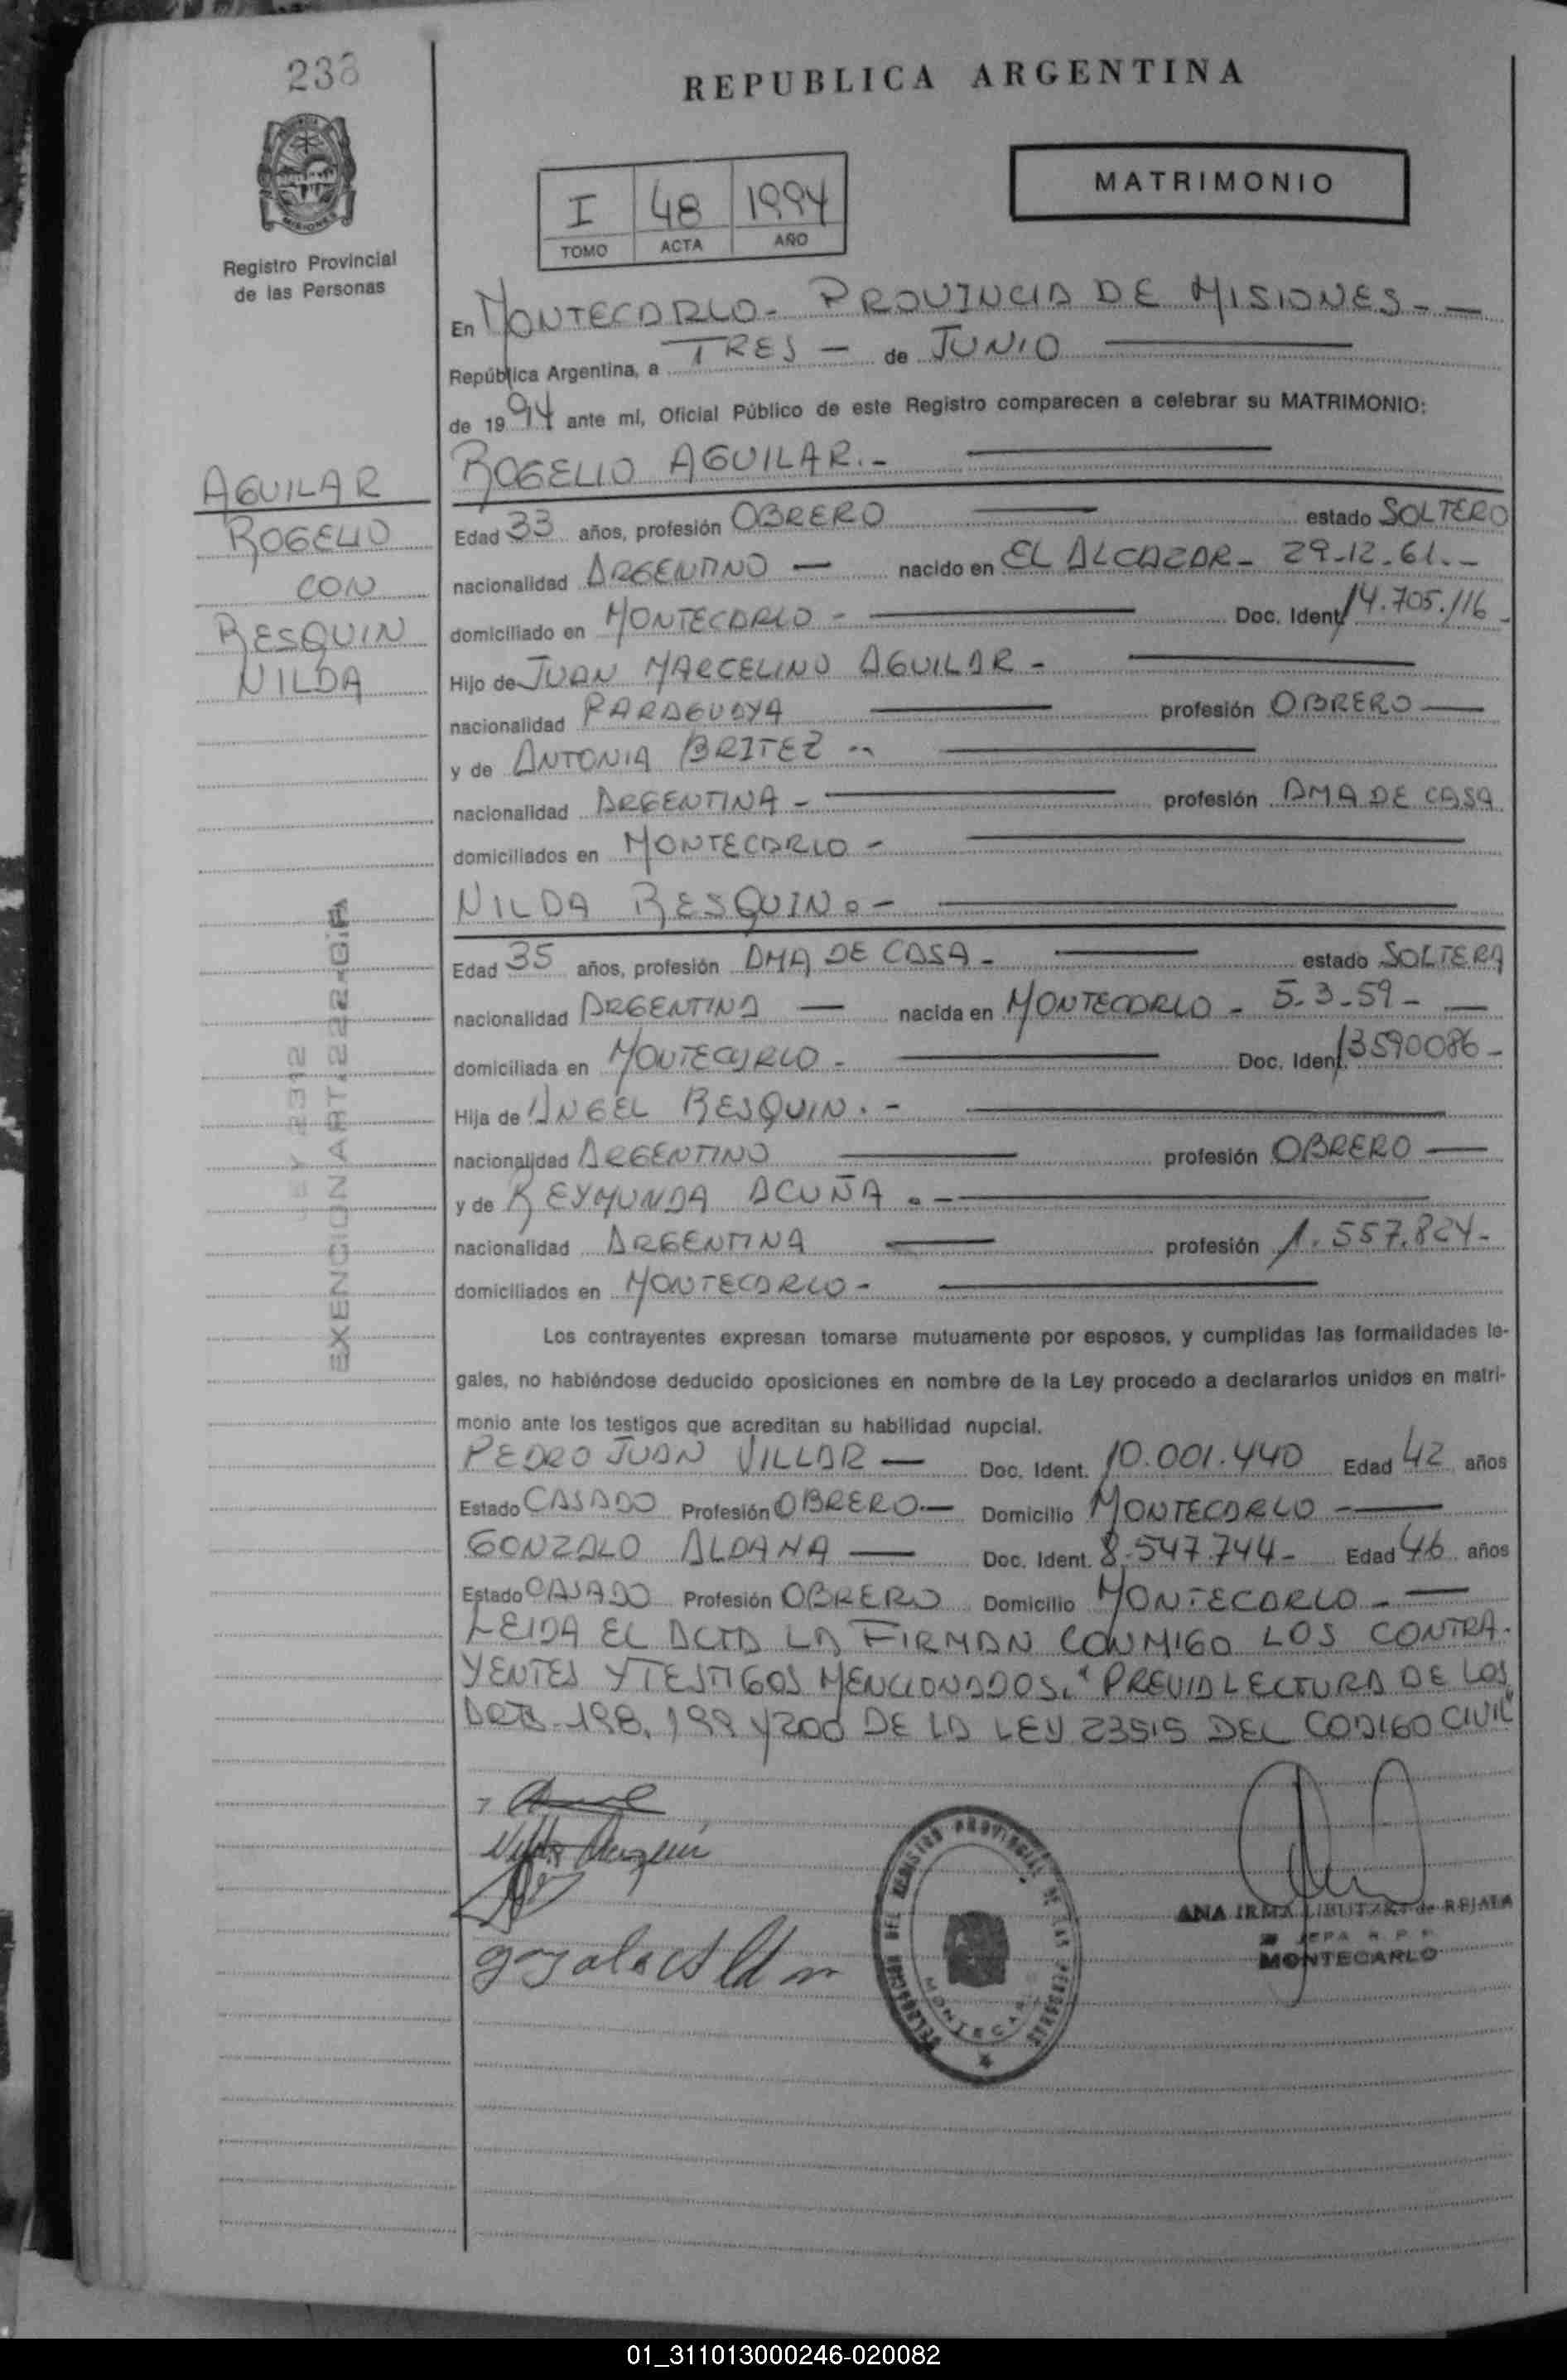 REPUBLICA ARGENTINA
MISIONES
Registro Provincial
de las Personas
I 48 1994
TOMO ACTA AÑO
MATRIMONIO
En MONTECARLO - PROVINCIA DE MISIONES - —
República Argentina, a TRES — de JUNIO
de 1994 ante mi, Oficial Público de este Registro comparecen a celebrar su MATRIMONIO:
ROGELIO AGUILAR. -
AGUILAR
ROGELIO
CON
RESQUIN
NILDA
Edad 33 años, profesión OBRERO estado SOLTERO
nacionalidad ARGENTINO — nacido en EL ALCAZAR - 29-12-61. -
domiciliado en MONTECARLO - Doc. Ident. 14.705.116 -
Hijo de JUAN MARCELINO AGUILAR -
nacionalidad PARAGUAYA profesión OBRERO —
y de ANTONIA BRITEZ --
nacionalidad ARGENTINA - profesión AMA DE CASA
domiciliados en MONTECARLO -
NILDA RESQUIN. -
Edad 35 años, profesión AMA DE CASA - estado SOLTERA
nacionalidad ARGENTINA — nacida en MONTECARLO - 5-3-59 - —
domiciliada en MONTECARLO - Doc. Ident. 13590086 -
Hija de ANGEL RESQUIN. -
nacionalidad ARGENTINO profesión OBRERO —
y de REYMUNDA ACUÑA. -
nacionalidad ARGENTINA profesión 1.557.824 -
domiciliados en MONTECARLO -
EXENCION ART. 222-G.F.
LEY 2312
Los contrayentes expresan tomarse mutuamente por esposos, y cumplidas las formalidades le-
gales, no habiéndose deducido oposiciones en nombre de la Ley procedo a declararlos unidos en matri-
monio ante los testigos que acreditan su habilidad nupcial.
PEDRO JUAN VILLAR — Doc. Ident. 10.001.440 Edad 42 años
Estado CASADO Profesión OBRERO — Domicilio MONTECARLO -
GONZALO ALDANA — Doc. Ident. 8.547.744 - Edad 46 años
Estado CASADO Profesión OBRERO Domicilio MONTECARLO - —
LEIDA EL ACTA LA FIRMAN CONMIGO LOS CONTRA-
YENTES Y TESTIGOS MENCIONADOS. "PREVIA LECTURA DE LOS
ARTS. 198, 199 Y 200 DE LA LEY 23515 DEL CODIGO CIVIL"
DELEGACION DEL REGISTRO PROVINCIAL DE LAS PERSONAS
MONTECARLO
ANA IRMA de REJALA
JEFA R. P. P.
MONTECARLO
01_311013000246-020082